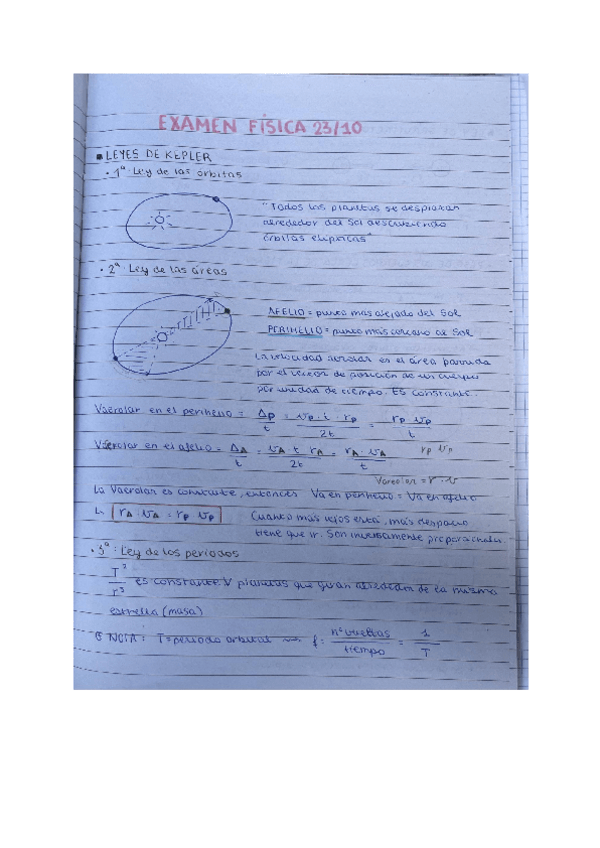 EXAMEN FÍSICA 23/10
LEYES DE KEPLER
· 1ª Ley de las órbitas
"Todos los planetas se desplazan
alrededor del Sol describiendo
órbitas elípticas"
· 2ª Ley de las áreas
AFELIO = punto más alejado del Sol
PERIHELIO = punto más cercano al Sol
La velocidad aerolar es el área barrida
por el vector de posición de un cuerpo
por unidad de tiempo. ES constante.
Vaerolar en el perihelio = Δp/t = vp · t · rp/2t = rp · vp/t
Vaerolar en el afelio = ΔA/t = vA · t · rA/2t = rA · vA/t rp vp
Vareolar = r · v
La Vaerolar es constante, entonces Va en perihelio = Va en afelio
rA · vA = rp vp Cuanto más lejos está, más despacio
tiene que ir. Son inversamente proporcionales.
· 3ª: Ley de los períodos
T²/r³ es constante ∀ planetas que giran alrededor de la misma
estrella (masa)
NOTA: T = período orbital f = nº vueltas/tiempo = 1/T